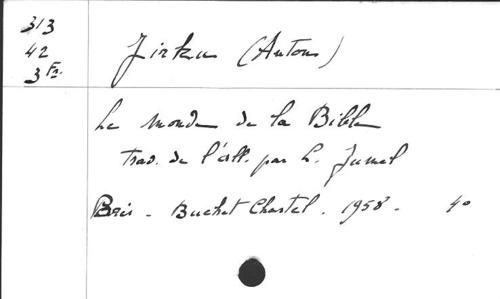 313
42
3 Fr.
Jirku (Anton)
Le monde de la Bible
trad. de l'all. par L. Jumel
Paris - Buchet Chastel. 1958 - 40